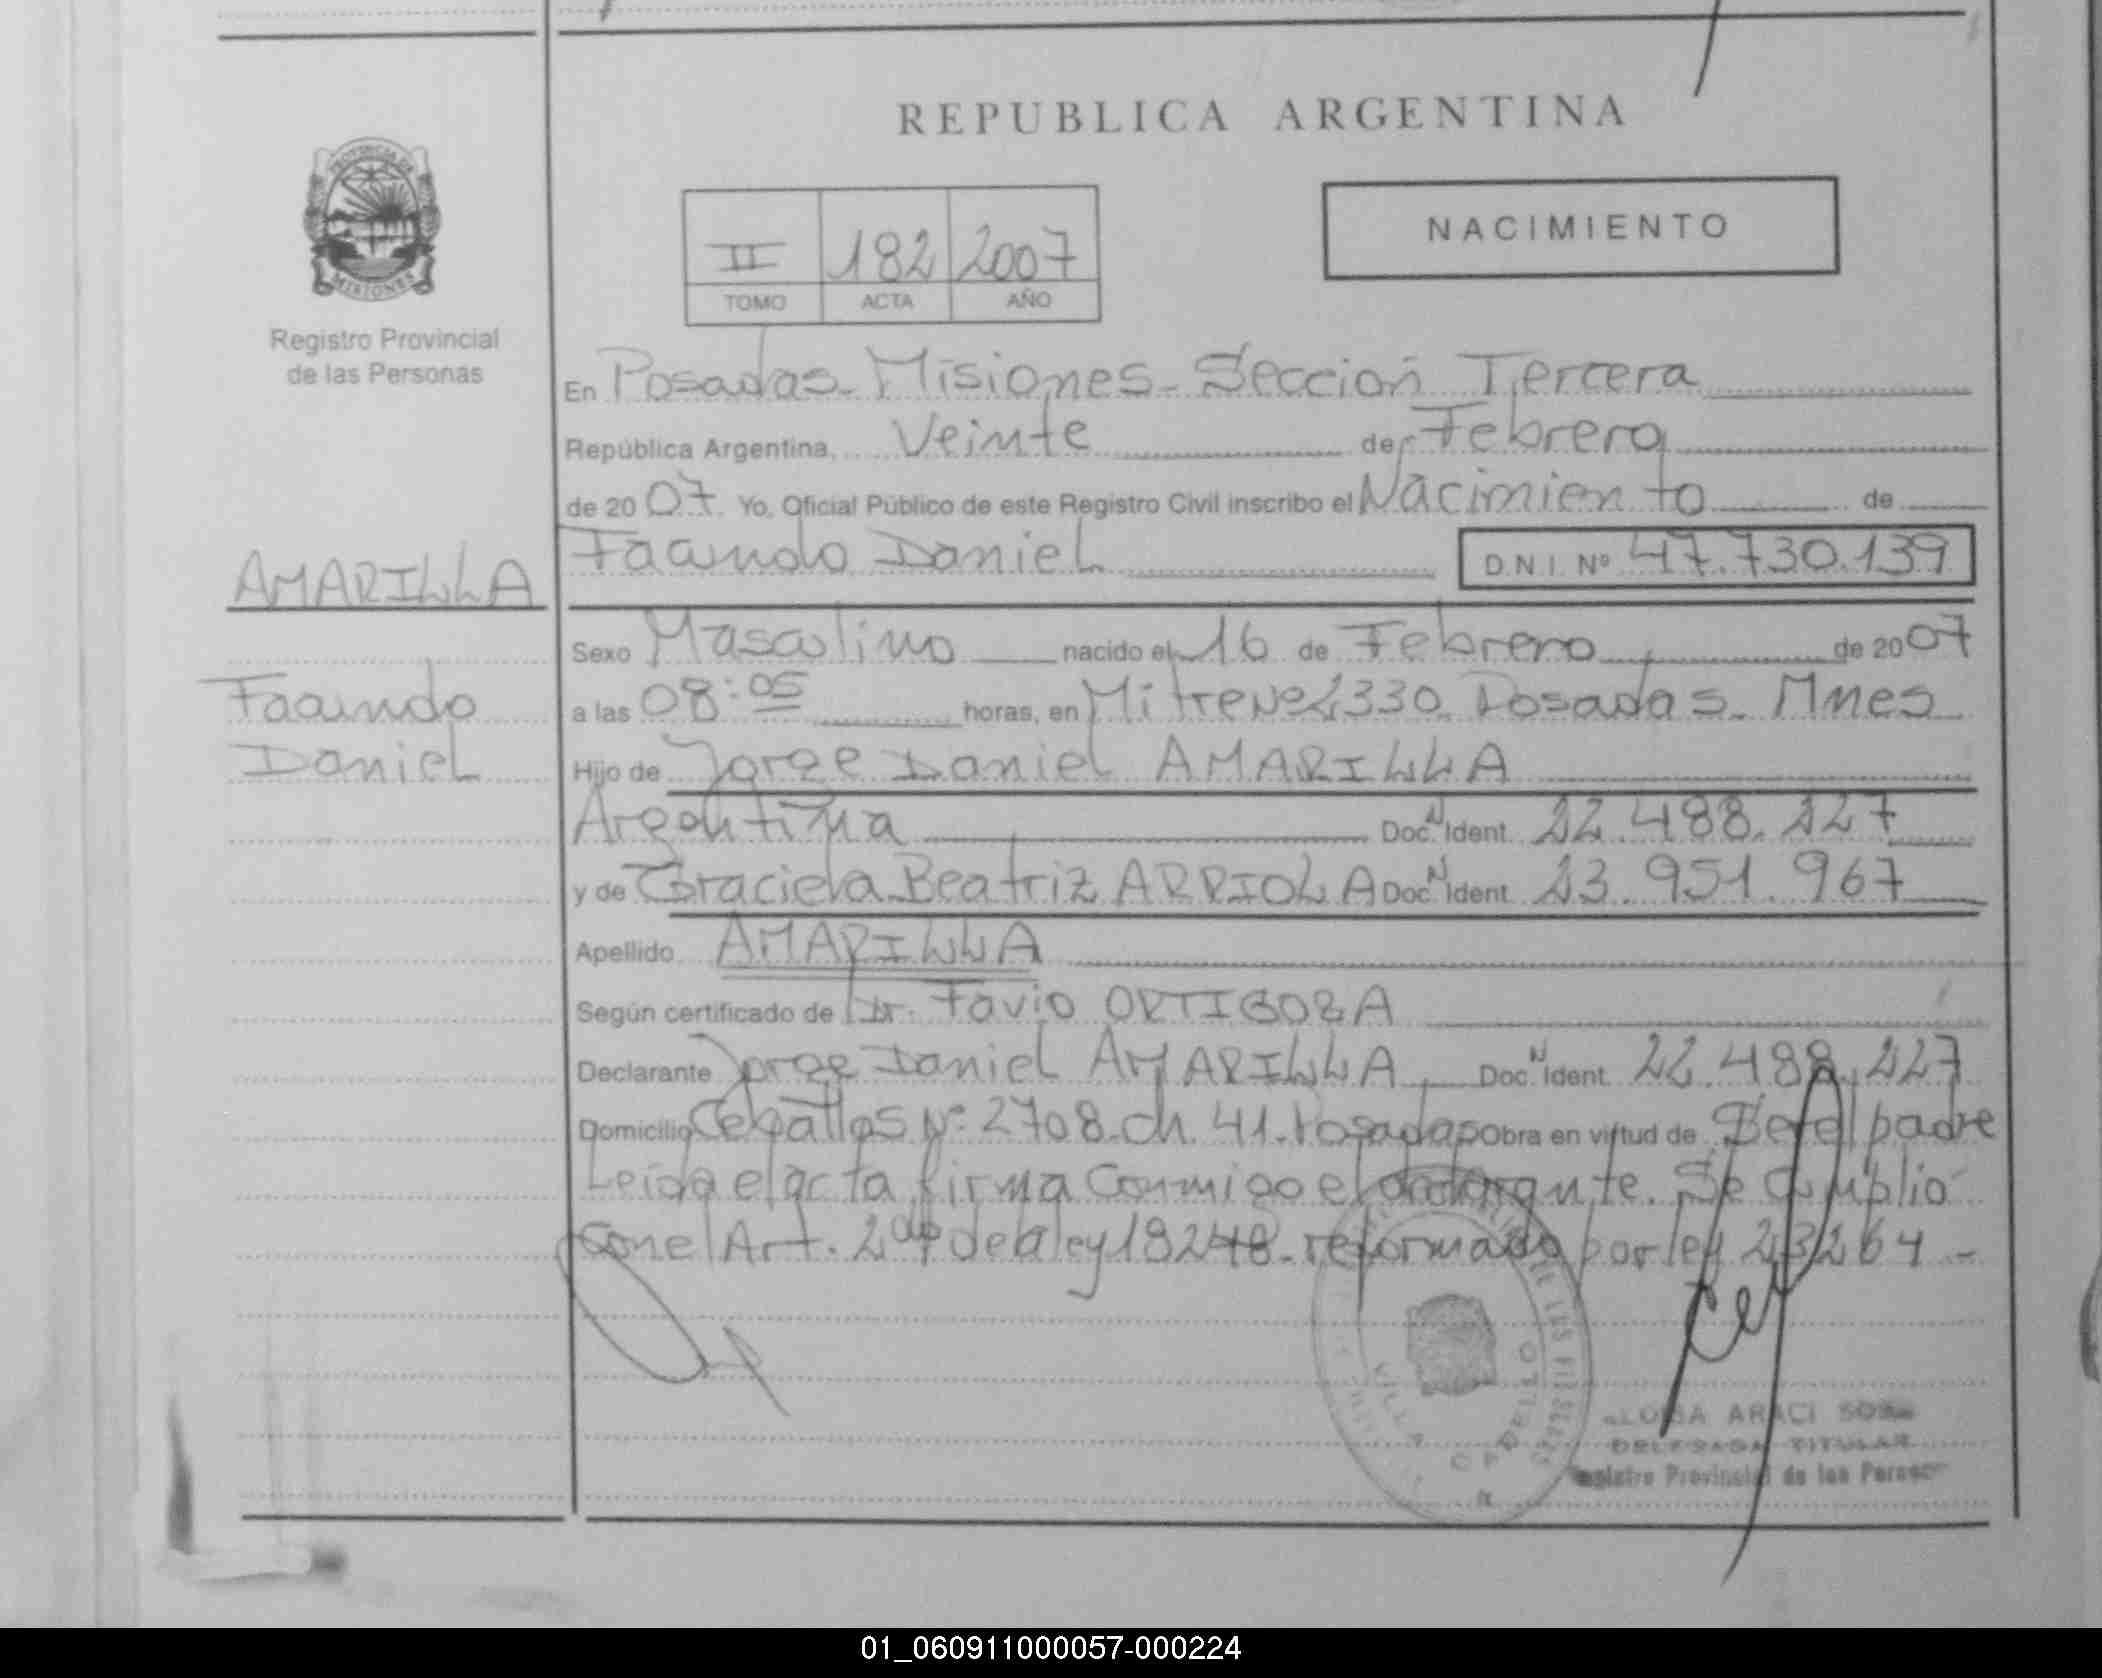 REPUBLICA ARGENTINA
PROVINCIA DE
MISIONES
Registro Provincial
de las Personas
NACIMIENTO
II 182 2007
TOMO ACTA AÑO
En Posadas - Misiones - Sección Tercera
República Argentina, Veinte de Febrero
de 2007 Yo, Oficial Público de este Registro Civil inscribo el Nacimiento de
Facundo Daniel D.N.I. Nº 47.730.139
AMARILLA
Facundo
Daniel
Sexo Masculino nacido el 16 de Febrero de 2007
a las 08:05 horas, en Mitre Nº 2330. Posadas - Mnes
Hijo de Jorge Daniel AMARILLA
Argentina Doc. N Ident. 22.488.227
y de Graciela Beatriz ARRIOLA Doc. N Ident. 23.951.967
Apellido AMARILLA
Según certificado de Dr. Favio ORTIGOZA
Declarante Jorge Daniel AMARILLA Doc. N Ident. 22.488.227
Domicilio Ceballos Nº: 2708. ch. 41. Posadas Obra en virtud de Ser el padre
Leída el acta firma Conmigo el declarante. Se Cumplió
con el Art. 2do de la ley 18248 - reformado por ley 23264 -
VILLA CABELLO
ARACI
DELEGADA TITULAR
Registro Provincial de las Personas
01_060911000057-000224